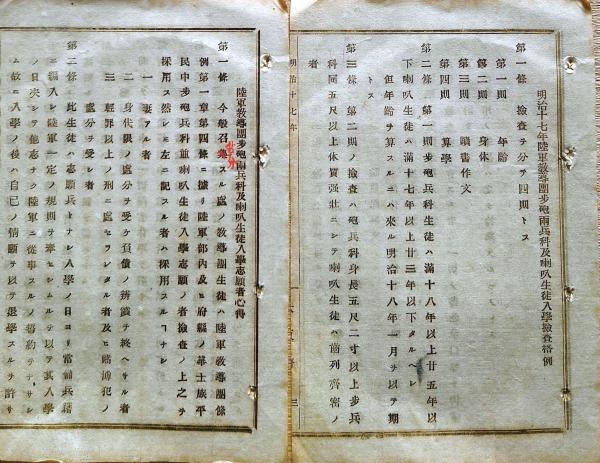 明治十七年陸軍敎導團步砲兩兵科及喇叭生徒入學檢査格例
第一條 檢査ヲ分テ四期トス
第一期 年齡
第二期 身体
第三期 讀書作文
第四期 算學
第二條 第一期步砲兵科生徒ハ滿十八年以上廿五年以
下喇叭生徒ハ滿十七年以上廿三年以下タルヘシ
但年齡ヲ算スルニハ來ル明治十八年一月ヲ以テ期
トス
第三條 第二期ノ檢査ハ砲兵科身長五尺二寸以上步兵
科同五尺以上体質强壯ニシテ喇叭生徒ハ齒列齊密ノ
者
明治十七年
陸軍敎導團步砲兩兵科及喇叭生徒入學志願者心得
第一條 今般召集スル處ノ敎導團生徒ハ陸軍敎導團條
例第一章第四條ニ據リ陸軍部內及ヒ府縣ノ華士族平
民中步砲兵科並喇叭生徒入學志願ノ者檢査ノ上之ヲ
採用ス然レ𪜈左ニ記スル者ハ採用スルヿナシ
一 妻アル者
二 身代限ノ處分ヲ受ケ負債ノ辨濟ヲ終ヘサル者
三 輕罪以上ノ刑ニ處セラレタル者及ヒ賭博犯ノ
處分ヲ受レ者
第二條 此生徒ハ志願兵トナシ入學ノ日ヨリ常備兵籍
ニ編入シ陸軍一定ノ規則ヲ遵
ノ日決シテ他志ナク陸軍ニ從事スルノ誓約ヲナサシ
ム故ニ入學ノ後ハ自己ノ情願ヲ以テ退學スルヲ許サ